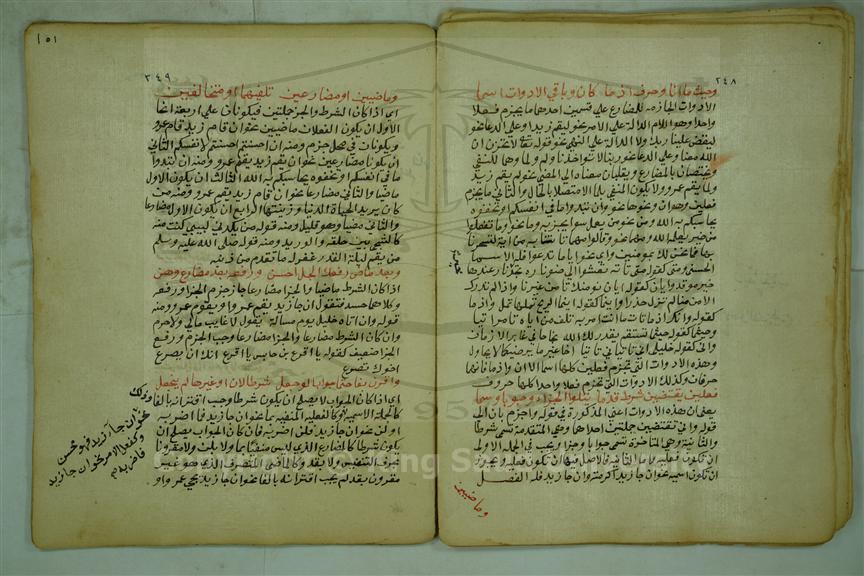 ٢٤٨
وحيثما انا وحرف اذ ما كان وباقي الادوات اسما
الادوات الجازمة للمضارع على قسمين احدهما ما يجزم فعلا
واحدا وهو اللام الدالة على الامر نحو ليقم زيد او على الدعا نحو
ليقض علينا ربك ولا الدالة على النهي نحو قوله تعالى لا تحزن ان
الله معنا وعلى الدعا نحو ربنا لا تواخذنا ولم ولما وهما للنفي
ويختصان بالمضارع ويقلبان معناه الى المضي نحو لم يقم زيد
ولما يقم عمرو ولا يكون المنفي بلما الا متصلا بالحال والثاني ما يجزم
فعلين وهو ان نحو وان تبدوا ما في انفسكم او تخفوه
يحاسبكم به الله ومن نحو من يعمل سوا يجز به وما نحو وما تفعلوا
من خير يعلمه الله ومهما نحو وقالوا مهما تاتنا به من اية لتسحرنا
بها فما نحن لك بمومنين واي نحو ايا ما تدعوا فله الاسما
الحسنى ومتى كقوله متى تاته تعشوا الى ضو ناره تجد خير نار عندها
خير موقد وايان كقوله ايان نومنك تامن غيرنا واذا لم تدرك
الامن منا لم تزل حذرا واينما كقوله اينما الريح تميلها تمل واذ ما
كقوله وانك اذ ما تات ما انت امر به تلف من اياه تامر اتيا
وحيثما كقوله حيثما تستقم يقدر لك الله نجاحا في غابر الازمان
وانى كقوله خليلي انى تاتياني تاتيا اخا غير ما يرضيكما لا يحاول
وهذه الادوات التي تجزم فعلين كلها اسما الا ان واذ ما فانهما
حرفان وكذلك الادوات التي تجزم فعلا واحدا كلها حروف
فعلين يقتضين شرط قدما يتلوا الجزا وجوابا وسما
يعني ان هذه الادوات اعني المذكورة في قوله واجزم بان الى
قوله وانى تقتضين جملتين احداهما وهي المتقدمة تسمى شرطا
والثانية وهي المتاخرة تسمى جوابا وجزا ويجب في الجملة الاولى
ان تكون فعلية واما الثانية فالاصل فيها ان تكون فعلية ويجوز
ان تكون اسمية نحو ان جا زيد اكرمته وان جا زيد فله الفضل
وماضيين
١٥١
٢٤٩
وماضيين او مضارعين تلفيهما او متخالفين
اي اذا كان الشرط والجزا جملتين فيكونان على اربعة انحا
الاول ان يكون الفعلان ماضيين نحو ان قام زيد قام عمرو
ويكونان في محل جزم ومنه ان احسنتم احسنتم لانفسكم الثاني
ان يكونا مضارعين نحو ان يقم زيد يقم عمرو ومنه ان تبدوا
ما في انفسكم او تخفوه يحاسبكم به الله الثالث ان يكون الاول
ماضيا والثاني مضارعا نحو ان قام زيد يقم عمرو ومنه من
كان يريد الحياة الدنيا وزينتها الرابع ان يكون الاول مضارعا
والثاني ماضيا وهو قليل ومنه قوله من يكدني بسيي كنت منه
كالشجى بين حلقه والوريد ومنه قوله صلى الله عليه وسلم
من يقم ليلة القدر غفر له ما تقدم من ذنبه
وبعد ماض رفعك الجزا حسن ورفعه بعد مضارع وهن
اذا كان الشرط ماضيا والجزا مضارعا جاز جزم الجزا ورفعه
وكلاهما حسن فتقول ان جا زيد يقم عمرو او يقوم عمرو ومنه
قوله وان اتاه خليل يوم مسالة يقول لا غايب مالي ولا حرم
وان كان الشرط مضارعا والجزا مضارعا وجب الجزم ورفع
الجزا ضعيف كقوله يا اقرع بن حابس يا اقرع انك ان يصرع
اخوك تصرع
واقرن بفا حتما جوابا لو جعل شرطا لان او غيرها لم ينجعل
اي اذا كان الجواب لا يصلح ان يكون شرطا وجب اقترانه بالفا وذلك
كالجملة الاسمية وكالفعلية المنفية بما نحو ان جا زيد فما اضربه
او لن نحو ان جا زيد فلن اضربه فان كان الجواب يصلح ان
يكون شرطا كالمضارع الذي ليس منفيا بما ولا بلن ولا مقرونا
بحرف التنفيس ولا بقد وكالماضي المتصرف الذي هو غير
مقرون بقد لم يجب اقترانه بالفا نحو ان جا زيد يجي عمرو او
نحو ان جا زيد فهو محسن
وكفعل الامر نحو ان جا زيد
فاضربه